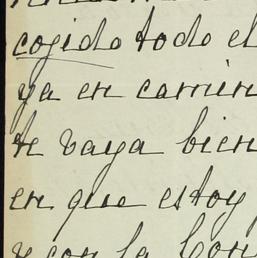 cogido todo el
ya en carrien
te vaya bien
en que estoy
y con la